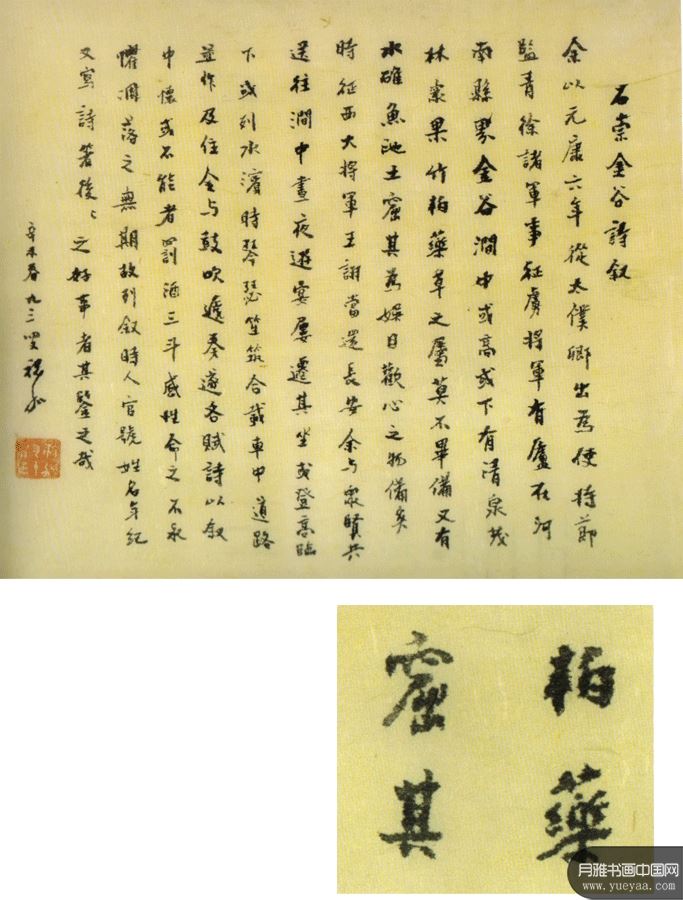 石崇金谷詩叙
余以元康六年從太僕卿出為使持節
監青徐諸軍事征虜將軍有廬在河
南縣界金谷澗中或高或下有清泉茂
林眾果竹柏藥草之屬莫不畢備又有
水碓魚池土窟其為娛目歡心之物備矣
時征西大將軍王詡當還長安余与眾賢共
送往澗中晝夜遊宴屢遷其坐或登高臨
下或列水濱時琴瑟笙筑合載車中道路
並作及住令与鼓吹遞奏遂各賦詩以叙
中懷或不能者罰酒三斗感性命之不永
懼凋落之無期故列叙時人官號姓名年紀
又寫詩著後後之好事者其覽之哉
辛未春九三叟
柏藥
窟其
月雅书画中国网
www.yueyaa.com